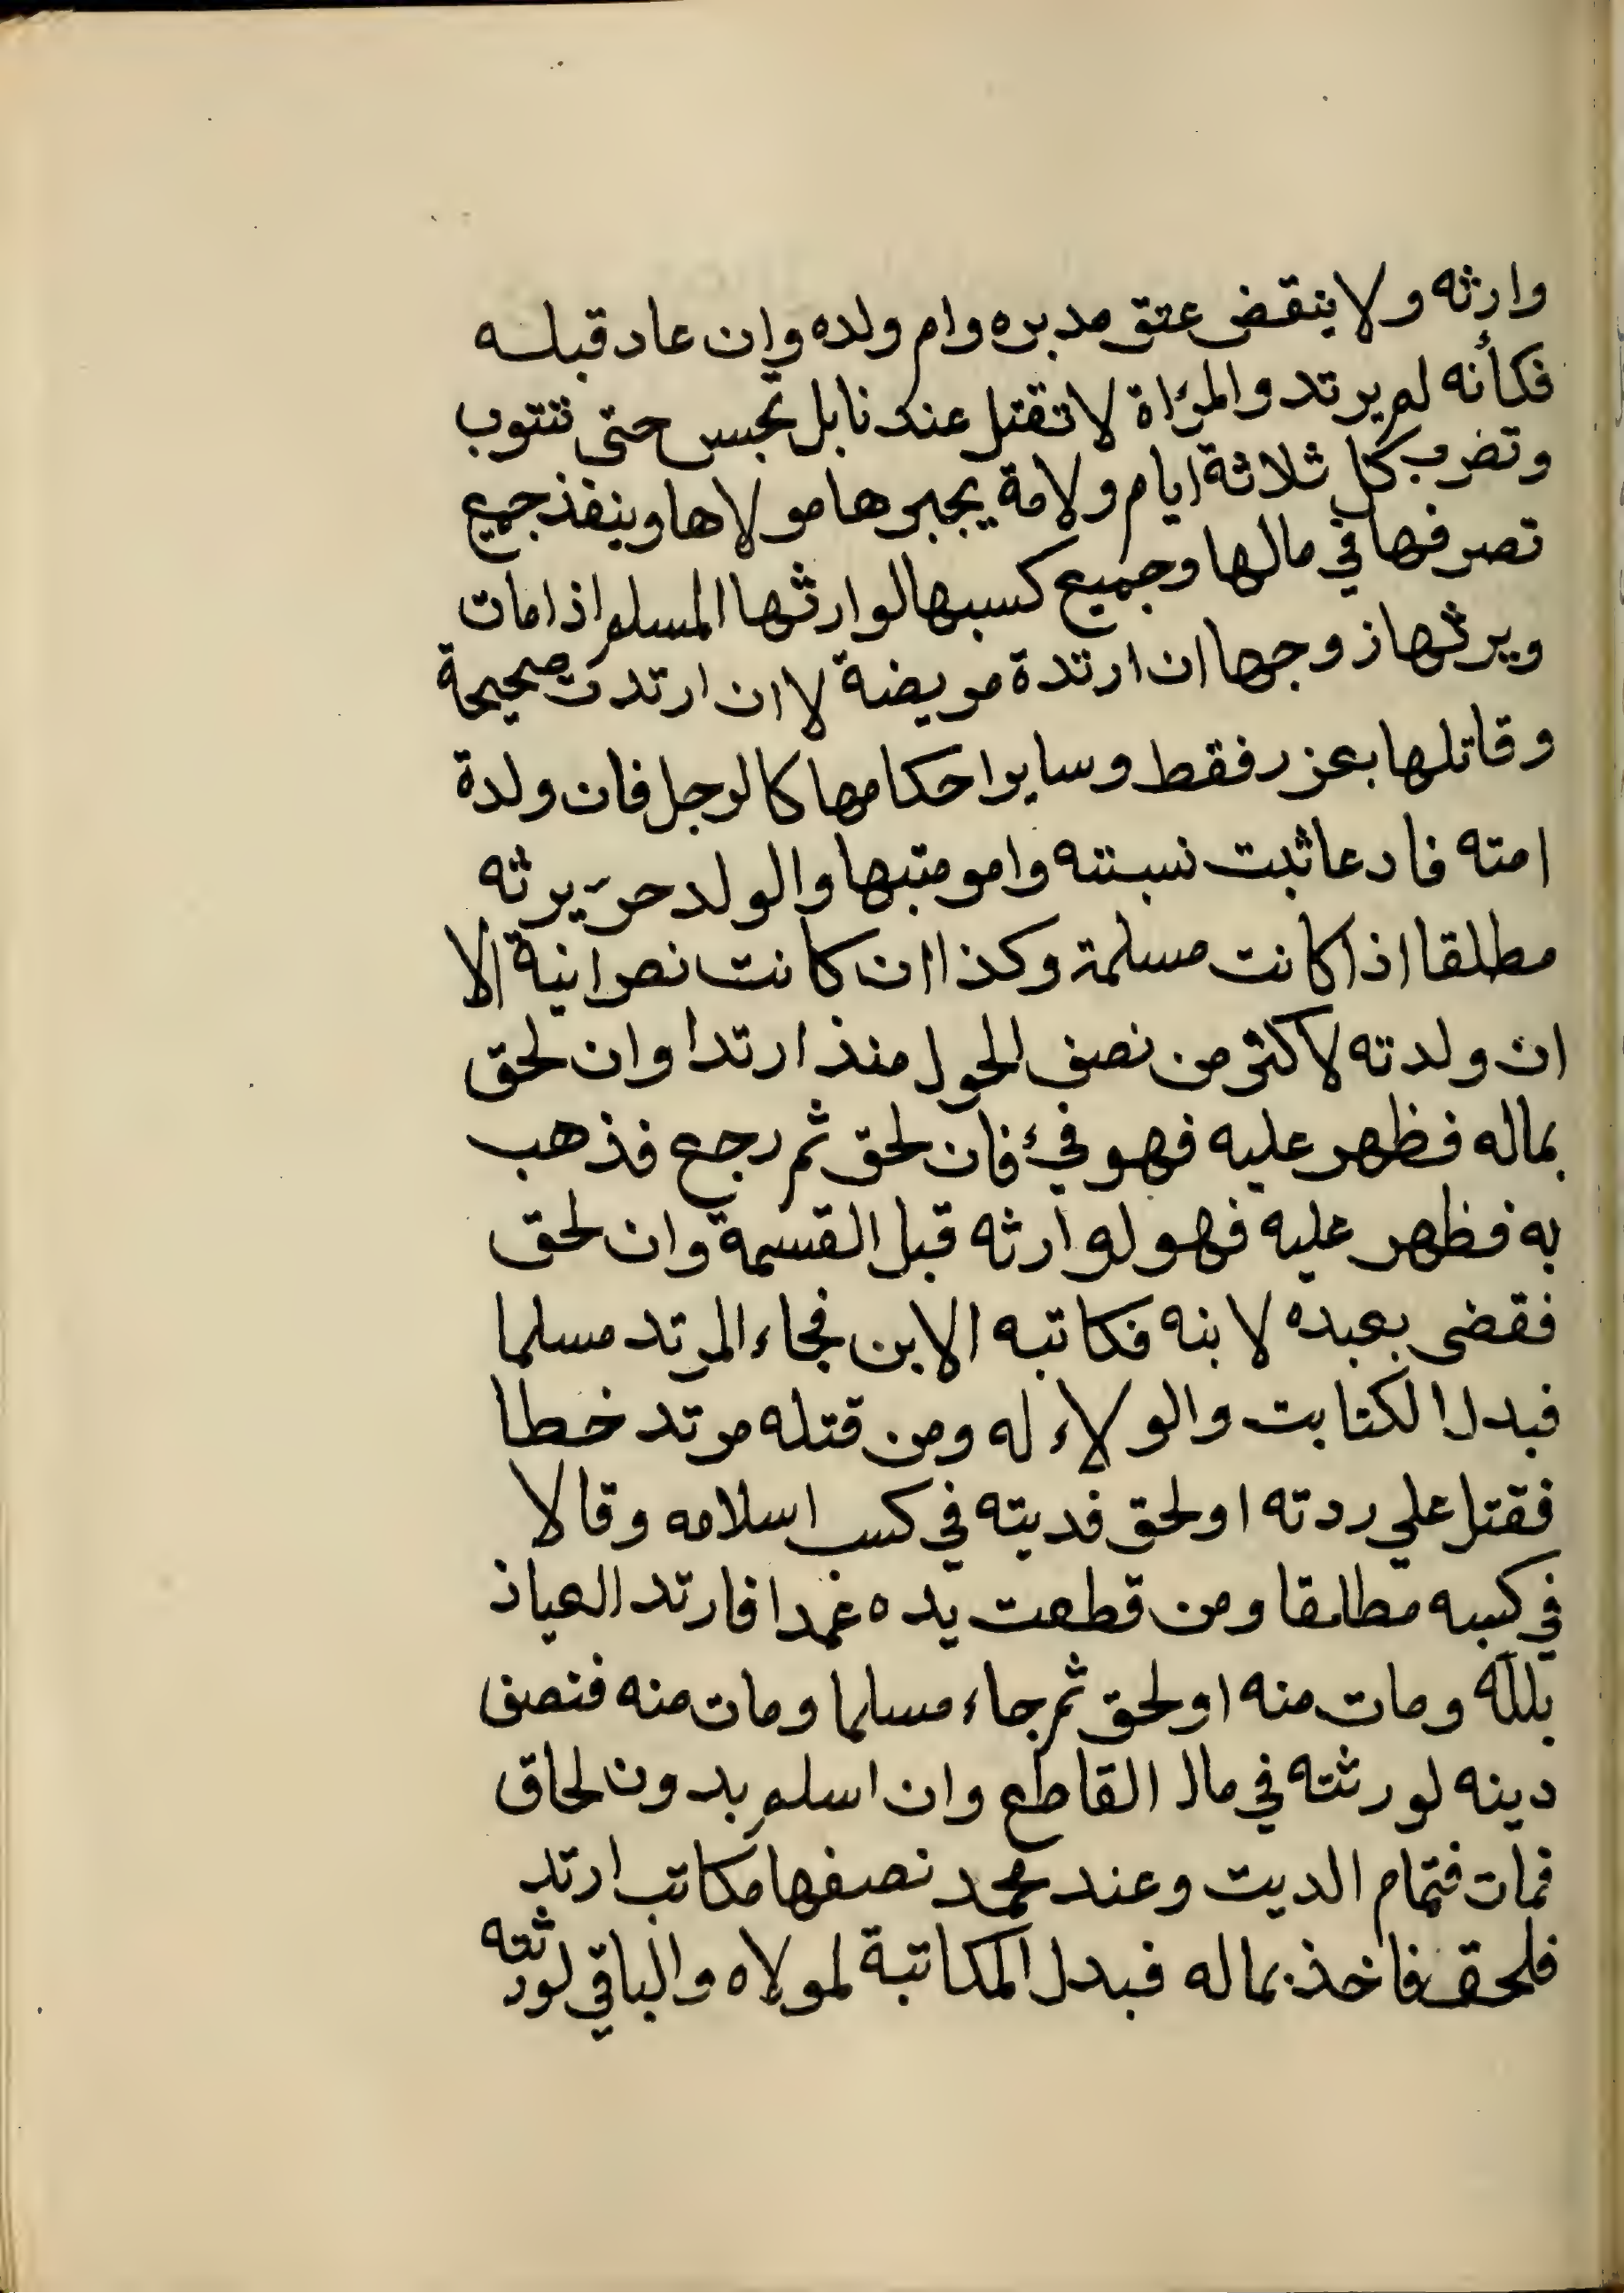 وارثه ولا ينقض عتق مدبره وام ولده وان عاد قبله
فكأنه لم يرتد والمرٔاة لا تقتل عندنا بل تحبس حتى تتوب
وتضرب كل ثلاثة ايام ولامة يجبرها مولاها وينفذ جميع
تصرفها في مالها وجميع كسبها لوارثها المسلم اذا مات
ويرثها زوجها ان ارتدة مريضة لا ان ارتدت صحيحة
وقاتلها بعزر فقط وساير احكامها كالرجل فان ولدة
امته فادعا ثبت نسبتنه وامومتبها والولد حر يرثه
مطلقا اذا كانت مسلمة وكذا ان كانت نصرانية الا
ان ولدته لاكثر من نصف الحول منذ ارتدا وان لحق
بماله فظهر عليه فهو فئ فان لحق ثم رجع فذهب
به فظهر عليه فهو لوارثه قبل القسمة وان لحق
فقضى بعبده لابنه فكاتبه الابن فجاء المرتد مسلما
فبدل الكتابت والولاء له ومن قتله مرتد خطا
فقتل علي ردته او لحق فديته في كسب اسلامه وقالا
في كسبه مطلقا ومن قطعت يده عمدا فارتد العياذ
بلله ومات منه او لحق ثم جاء مسلما ومات منه فنصف
دينه لورثته في مال القاطع وان اسلم بدون لحاق
فمات فتمام الديت وعند محمد نصفها مكاتب ارتد
فلحق فاخذ بماله فبدل المكاتبة لمولاه والباقي لورثته